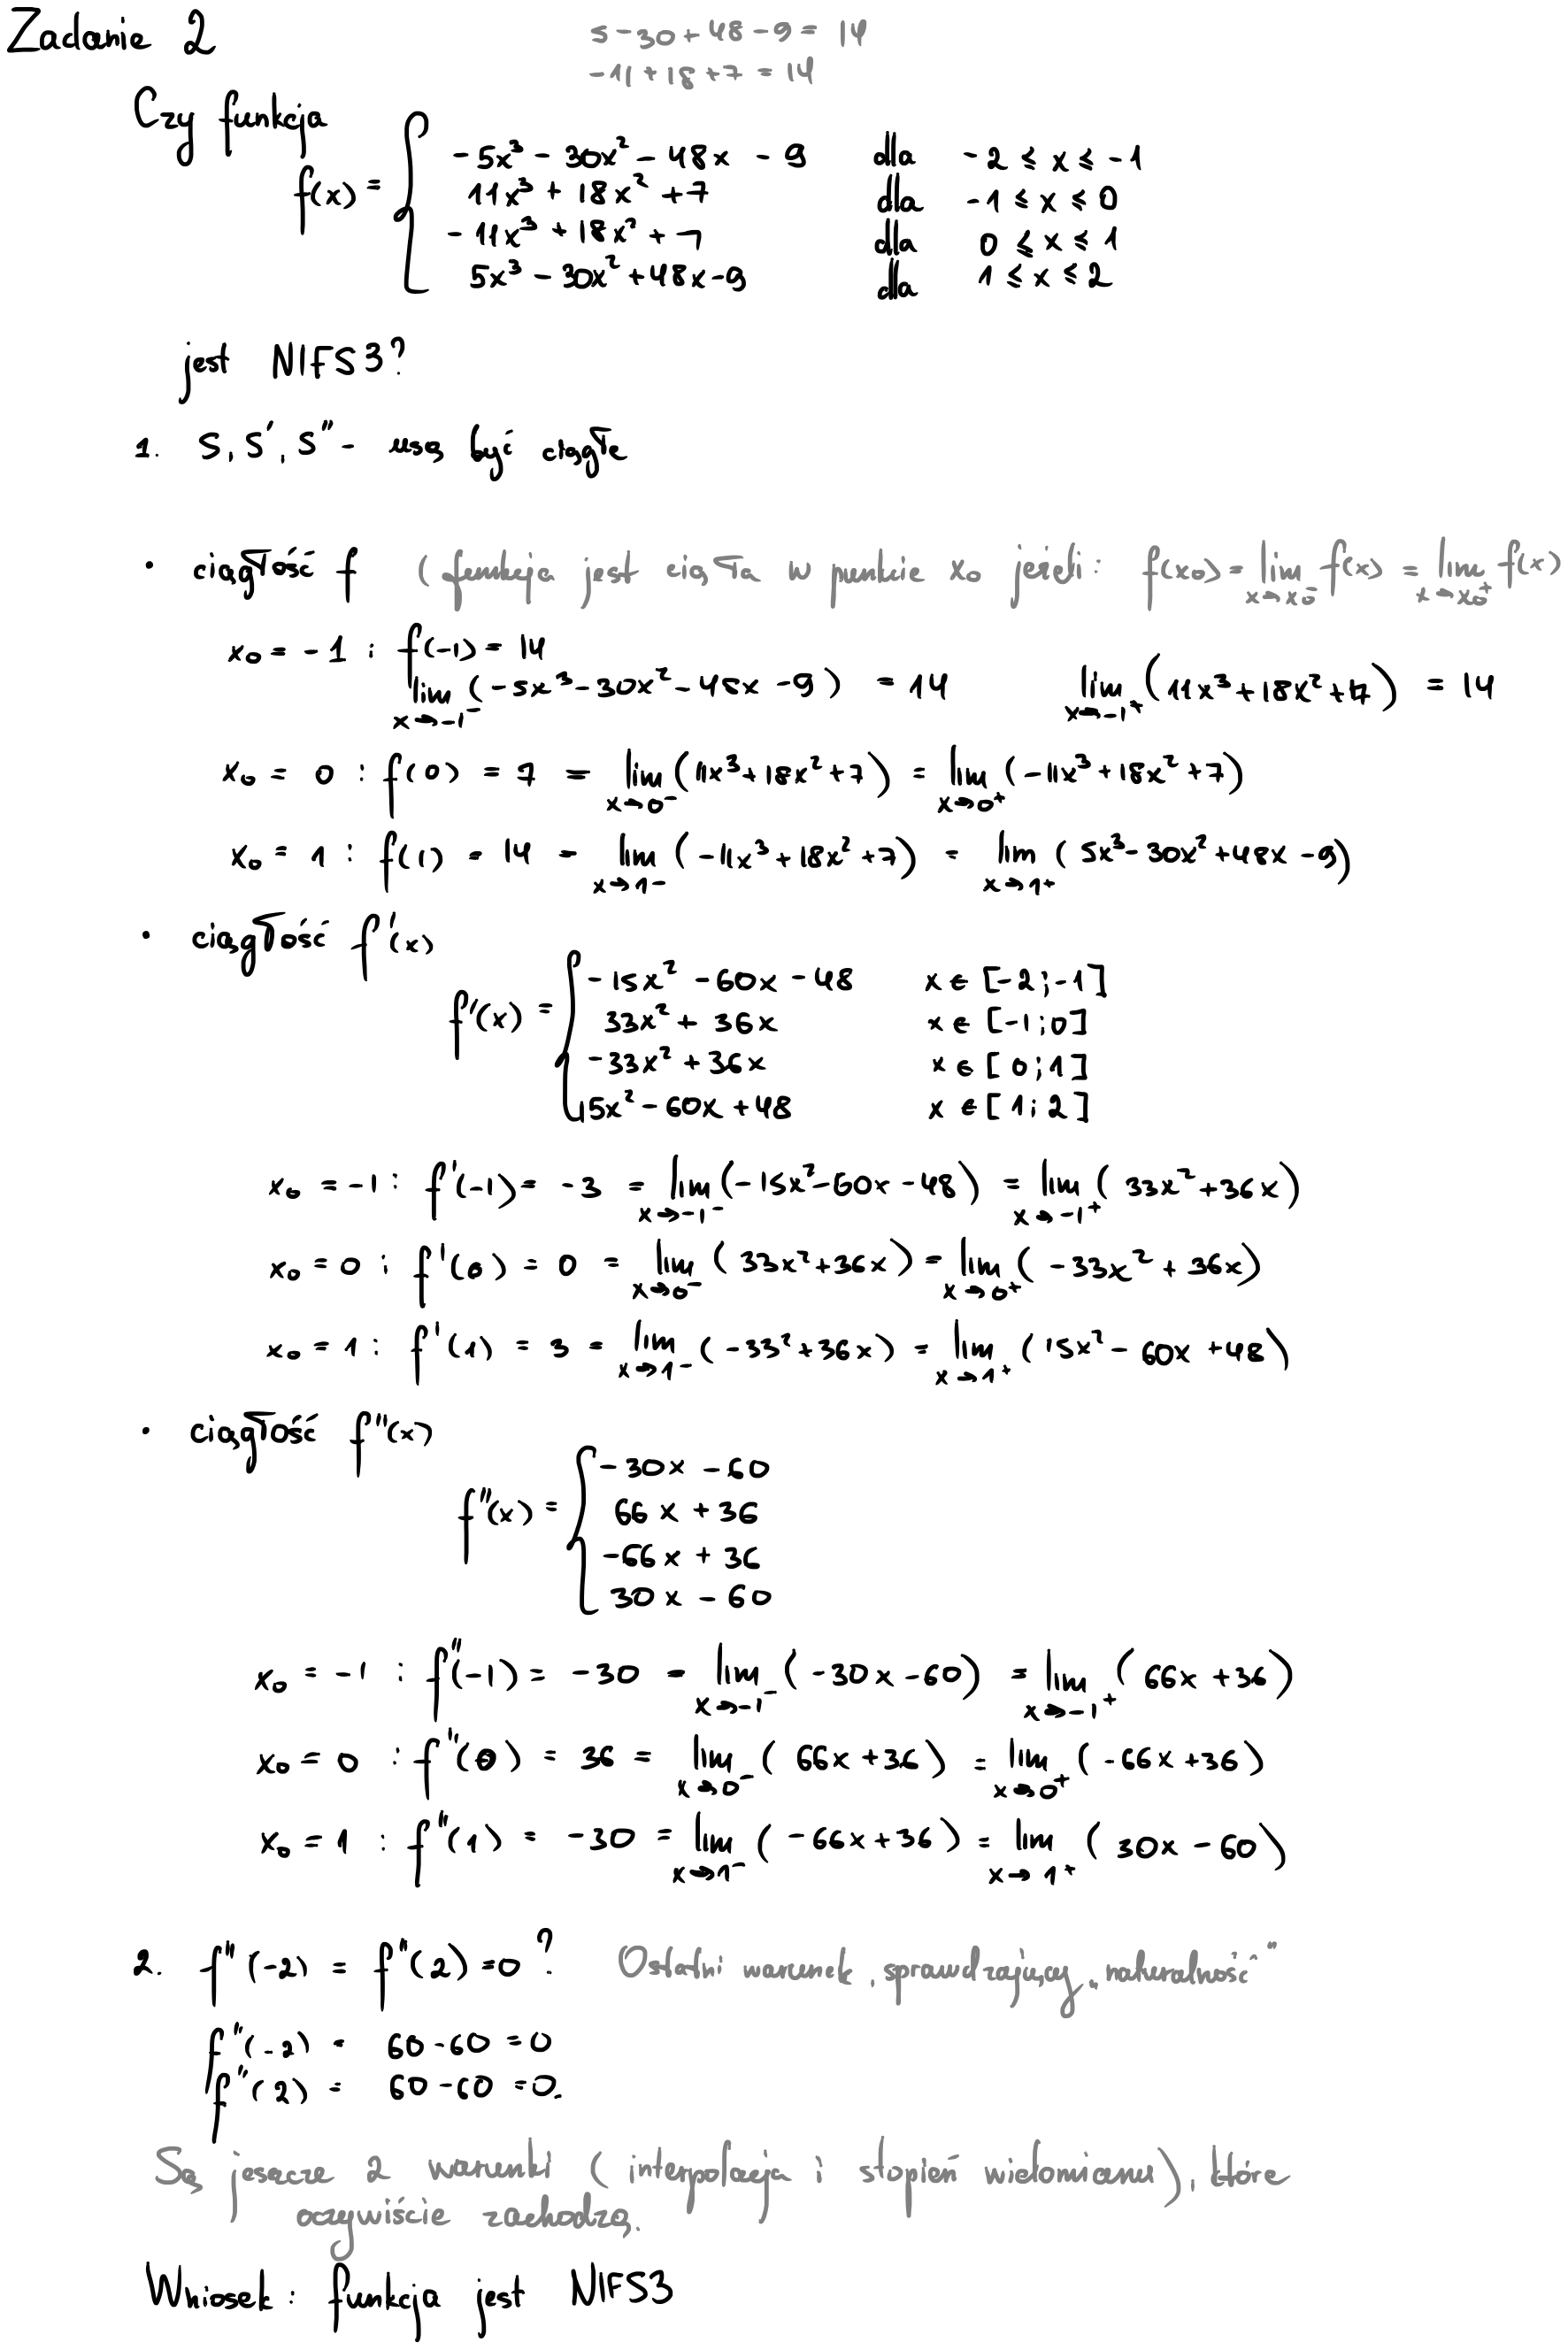 Zadanie 2
5 - 30 + 48 - 9 = 14
-11 + 18 + 7 = 14
Czy funkcja
f(x) = { -5x³ - 30x² - 48x - 9 dla -2 ≤ x ≤ -1
11x³ + 18x² + 7 dla -1 ≤ x ≤ 0
-11x³ + 18x² + 7 dla 0 ≤ x ≤ 1
5x³ - 30x² + 48x - 9 dla 1 ≤ x ≤ 2
jest NIFS3?
1. S, S', S'' - muszą być ciągłe
• ciągłość f (funkcja jest ciągła w punkcie x₀ jeżeli: f(x₀) = lim x→x₀⁻ f(x) = lim x→x₀⁺ f(x)
x₀ = -1 : f(-1) = 14
lim x→-1⁻ (-5x³ - 30x² - 48x - 9) = 14 lim x→-1⁺ (11x³ + 18x² + 7) = 14
x₀ = 0 : f(0) = 7 = lim x→0⁻ (11x³ + 18x² + 7) = lim x→0⁺ (-11x³ + 18x² + 7)
x₀ = 1 : f(1) = 14 = lim x→1⁻ (-11x³ + 18x² + 7) = lim x→1⁺ (5x³ - 30x² + 48x - 9)
• ciągłość f'(x)
f'(x) = { -15x² - 60x - 48 x ∈ [-2;-1]
33x² + 36x x ∈ [-1;0]
-33x² + 36x x ∈ [0;1]
15x² - 60x + 48 x ∈ [1;2]
x₀ = -1 : f'(-1) = -3 = lim x→-1⁻ (-15x² - 60x - 48) = lim x→-1⁺ (33x² + 36x)
x₀ = 0 : f'(0) = 0 = lim x→0⁻ (33x² + 36x) = lim x→0⁺ (-33x² + 36x)
x₀ = 1 : f'(1) = 3 = lim x→1⁻ (-33² + 36x) = lim x→1⁺ (15x² - 60x + 48)
• ciągłość f''(x)
f''(x) = { -30x - 60
66x + 36
-66x + 36
30x - 60
x₀ = -1 : f''(-1) = -30 = lim x→-1⁻ (-30x - 60) = lim x→-1⁺ (66x + 36)
x₀ = 0 : f''(0) = 36 = lim x→0⁻ (66x + 36) = lim x→0⁺ (-66x + 36)
x₀ = 1 : f''(1) = -30 = lim x→1⁻ (-66x + 36) = lim x→1⁺ (30x - 60)
2. f''(-2) = f''(2) = 0? Ostatni warunek, sprawdzający „naturalność"
f''(-2) = 60 - 60 = 0
f''(2) = 60 - 60 = 0.
Są jeszcze 2 warunki (interpolacja i stopień wielomianu), które
oczywiście zachodzą.
Wniosek: funkcja jest NIFS3